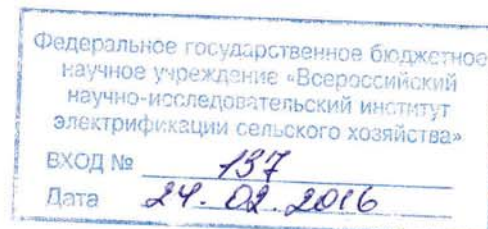 Федеральное государственное бюджетное
научное учреждение «Всероссийский
научно-исследовательский институт
электрификации сельского хозяйства»
ВХОД № 137
Дата 24.02.2016